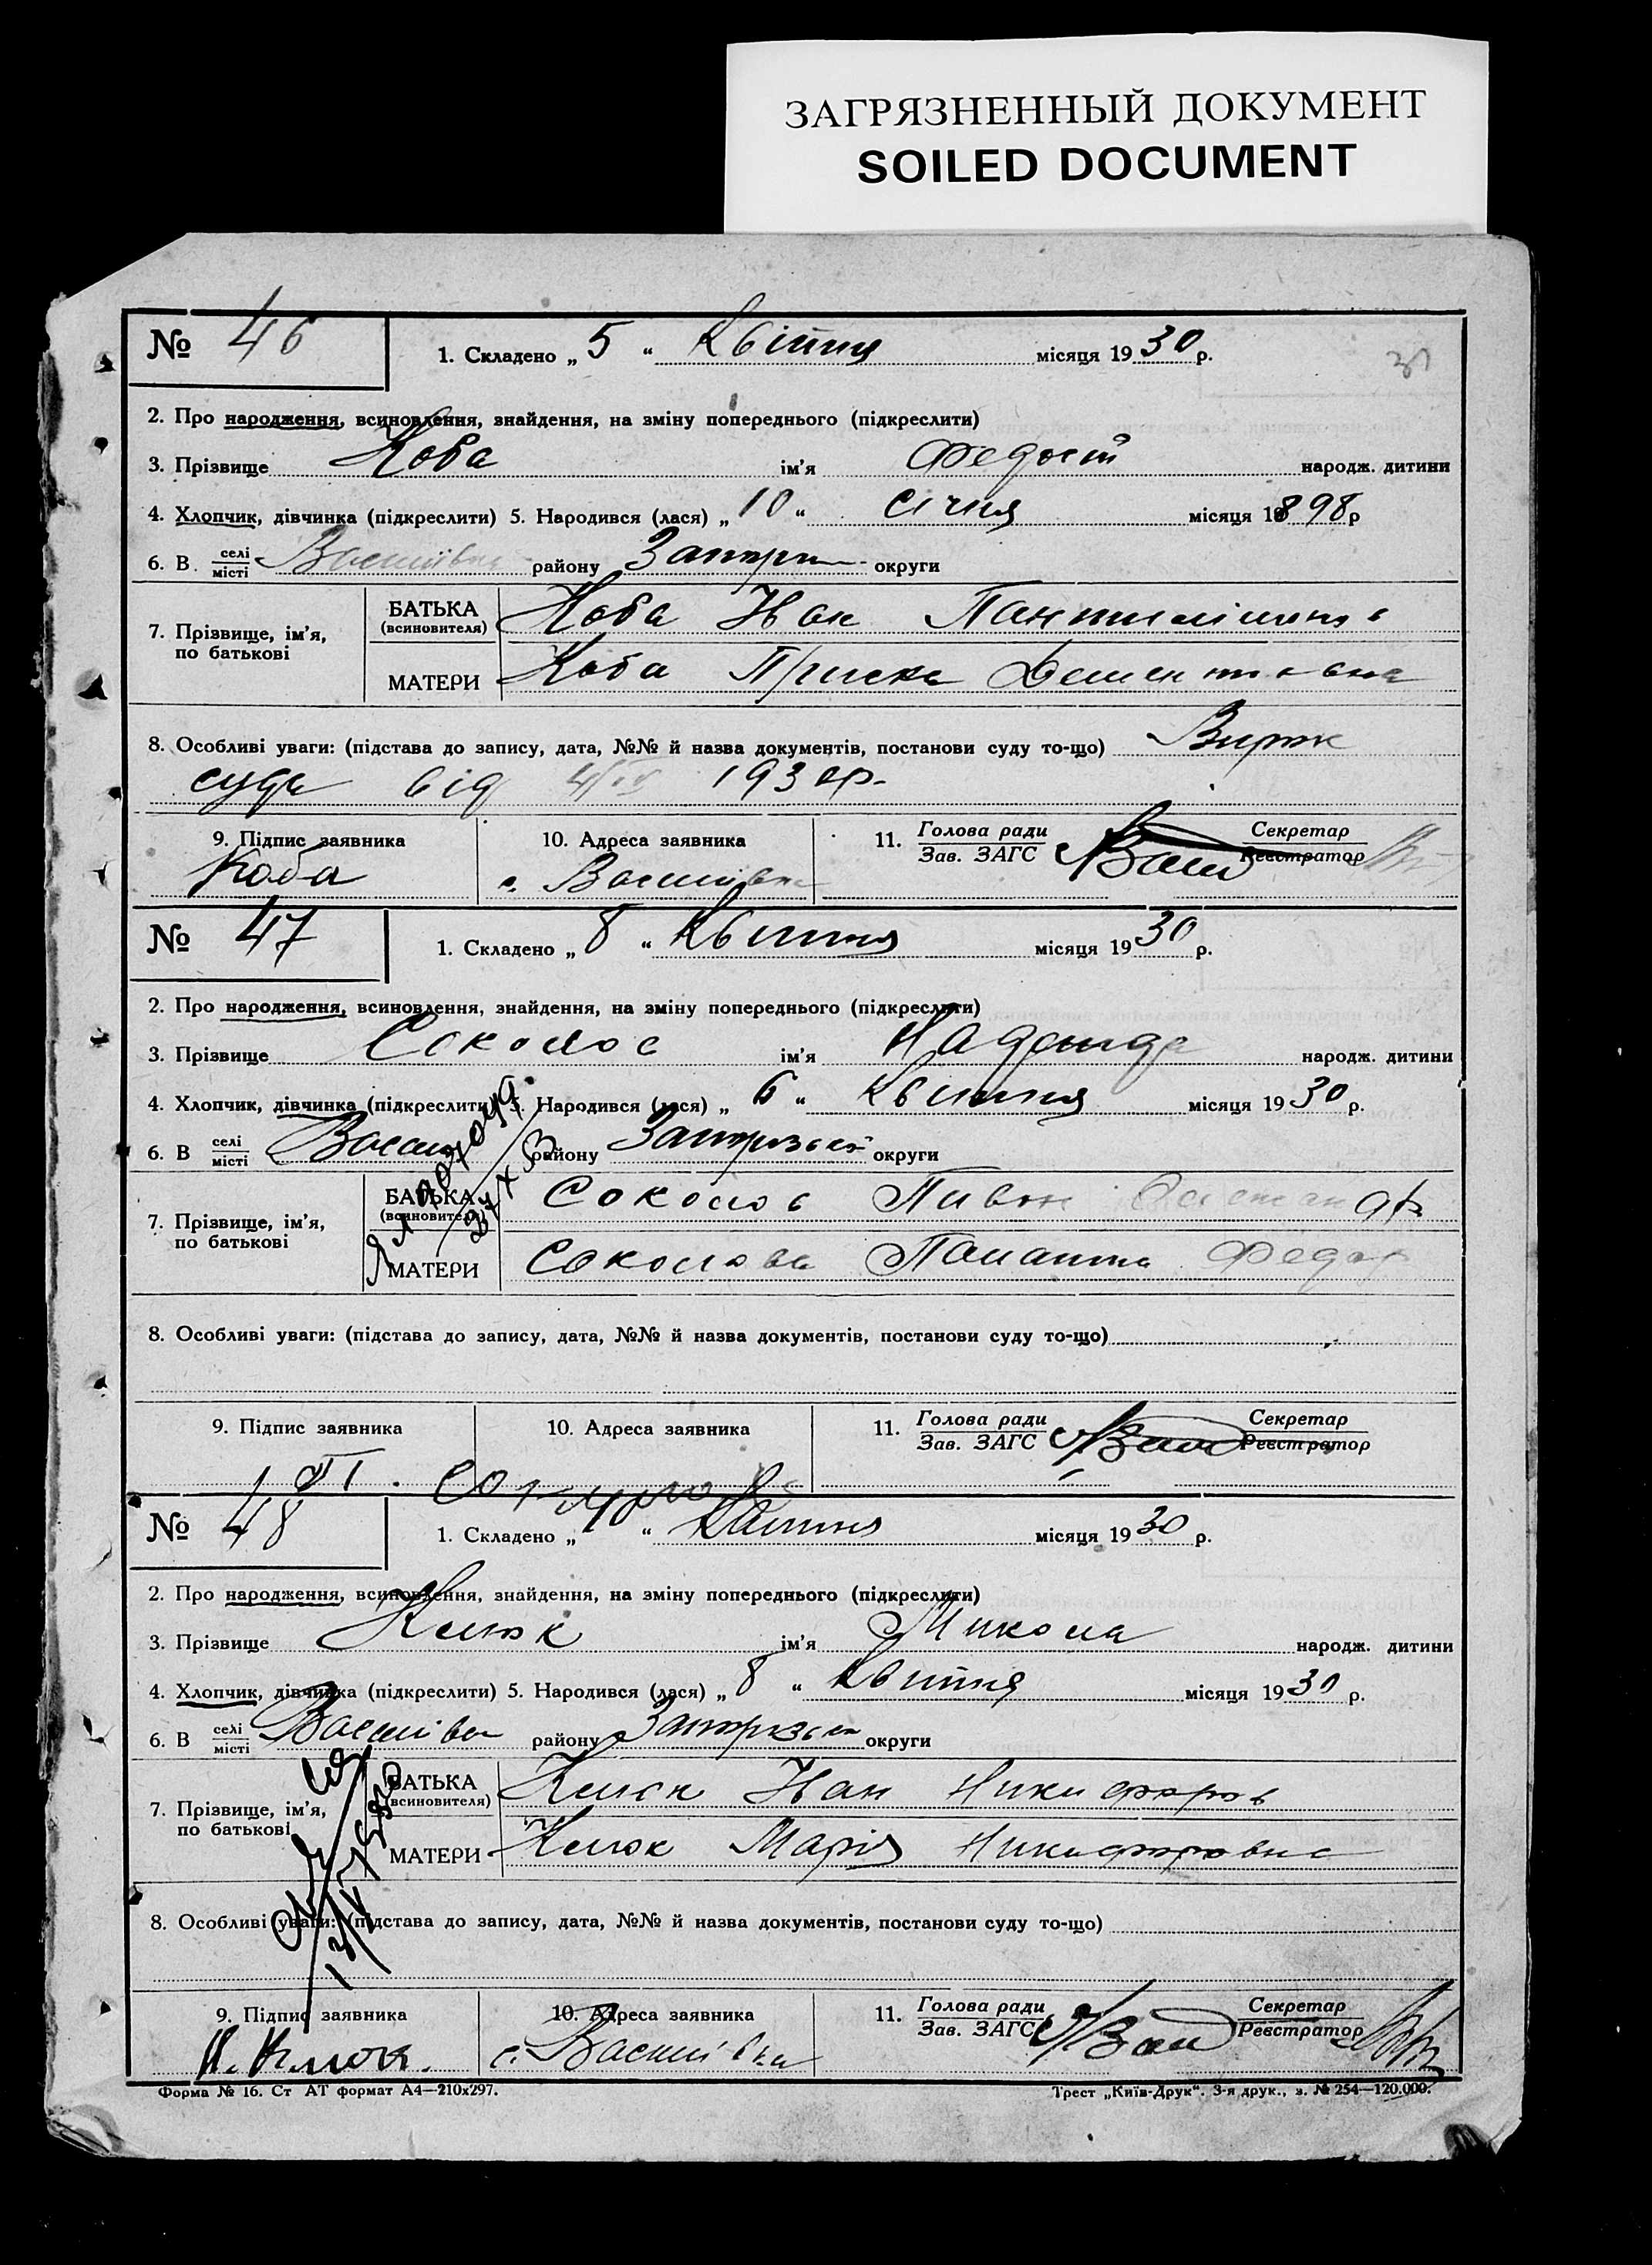 ЗАГРЯЗНЕННЫЙ ДОКУМЕНТ
SOILED DOCUMENT
№ 46 1. Складено „ 5 “ Квітня місяця 19 30 р.
2. Про народження, всиновлення, знайдення, на зміну попереднього (підкреслити)
3. Прізвище Коба ім'я Федосій народж. дитини
4. Хлопчик, дівчинка (підкреслити) 5. Народився (лася) „ 10 “ січня місяця 1898 р
6. В селі/місті Василівка району округи
7. Прізвище, ім'я, по батькові
БАТЬКА (всиновителя) Коба Іван
МАТЕРИ Коба Приска
8. Особливі уваги: (підстава до запису, дата, №№ й назва документів, постанови суду то-що) Вирок
суда від 4/IV 1930р.
9. Підпис заявника 10. Адреса заявника 11. Голова ради/Зав. ЗАГС Секретар/Реєстратор
Коба с. Василівка
№ 47 1. Складено „ 8 “ Квітня місяця 19 30 р.
2. Про народження, всиновлення, знайдення, на зміну попереднього (підкреслити)
3. Прізвище Соколов ім'я Надежда народж. дитини
4. Хлопчик, дівчинка (підкреслити) 5. Народився (лася) „ 6 “ квітня місяця 19 30 р.
6. В селі/місті району округи
7. Прізвище, ім'я, по батькові
БАТЬКА (всиновителя) Соколов
МАТЕРИ Соколова Федор
8. Особливі уваги: (підстава до запису, дата, №№ й назва документів, постанови суду то-що)
9. Підпис заявника 10. Адреса заявника 11. Голова ради/Зав. ЗАГС Секретар/Реєстратор
№ 48 1. Складено „ 10 “ Квітня місяця 19 30 р.
2. Про народження, всиновлення, знайдення, на зміну попереднього (підкреслити)
3. Прізвище Клюк ім'я Микола народж. дитини
4. Хлопчик, дівчинка (підкреслити) 5. Народився (лася) „ 8 “ Квітня місяця 19 30 р.
6. В селі/місті Василівка району округи
7. Прізвище, ім'я, по батькові
БАТЬКА (всиновителя) Клюк Іван Никифоров
МАТЕРИ Клюк Марія Никифоровна
8. Особливі уваги: (підстава до запису, дата, №№ й назва документів, постанови суду то-що)
9. Підпис заявника 10. Адреса заявника 11. Голова ради/Зав. ЗАГС Секретар/Реєстратор
Клюк. с. Василівка
Форма № 16. Ст АТ формат А4—210х297. Трест „Київ-Друк“. 3-я друк., з. № 254—120.000.